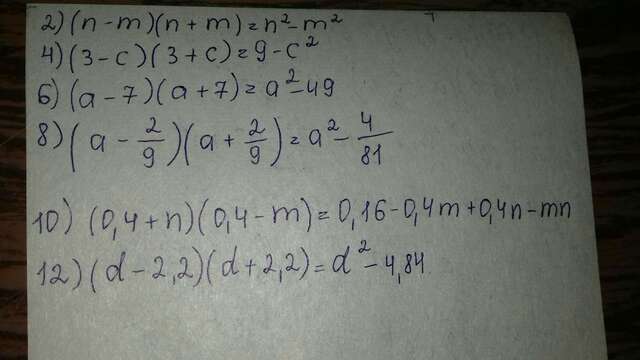 2) (n - m)(n + m) = n² - m²
4) (3 - c)(3 + c) = 9 - c²
6) (a - 7)(a + 7) = a² - 49
8) (a - 2/9)(a + 2/9) = a² - 4/81
10) (0,4 + n)(0,4 - m) = 0,16 - 0,4m + 0,4n - mn
12) (d - 2,2)(d + 2,2) = d² - 4,84